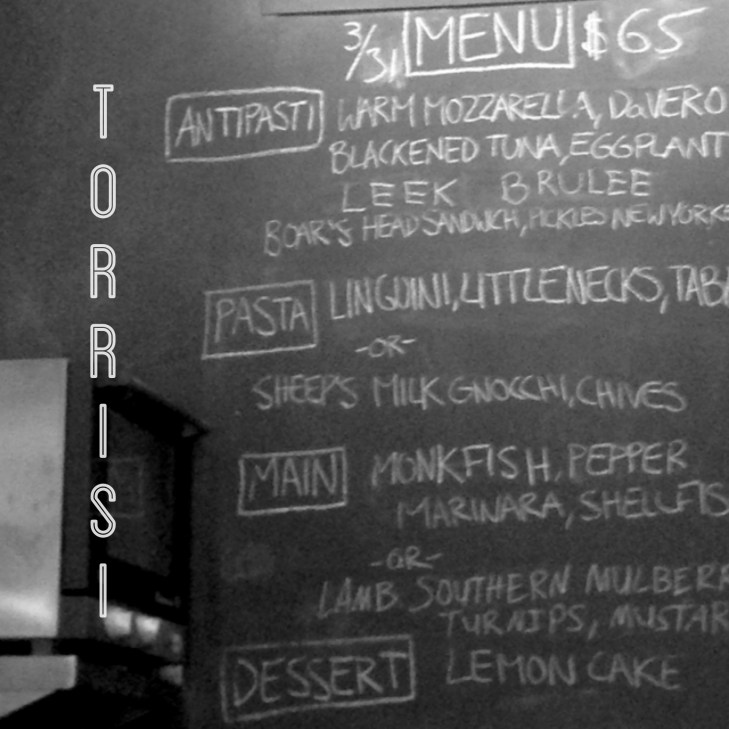 TORRISI
3/31 MENU $65
ANTIPASTI WARM MOZZARELLA, DaVERO
BLACKENED TUNA, EGGPLANT
LEEK BRULEE
BOAR'S HEAD SANDWICH, PICKLES NEW YORKE
PASTA LINGUINI, LITTLENECKS, TAB
-OR-
SHEEP'S MILK GNOCCHI, CHIVES
MAIN MONKFISH, PEPPER
MARINARA, SHELLFIS
-OR-
LAMB SOUTHERN MULBERR
TURNIPS, MUSTAR
DESSERT LEMON CAKE